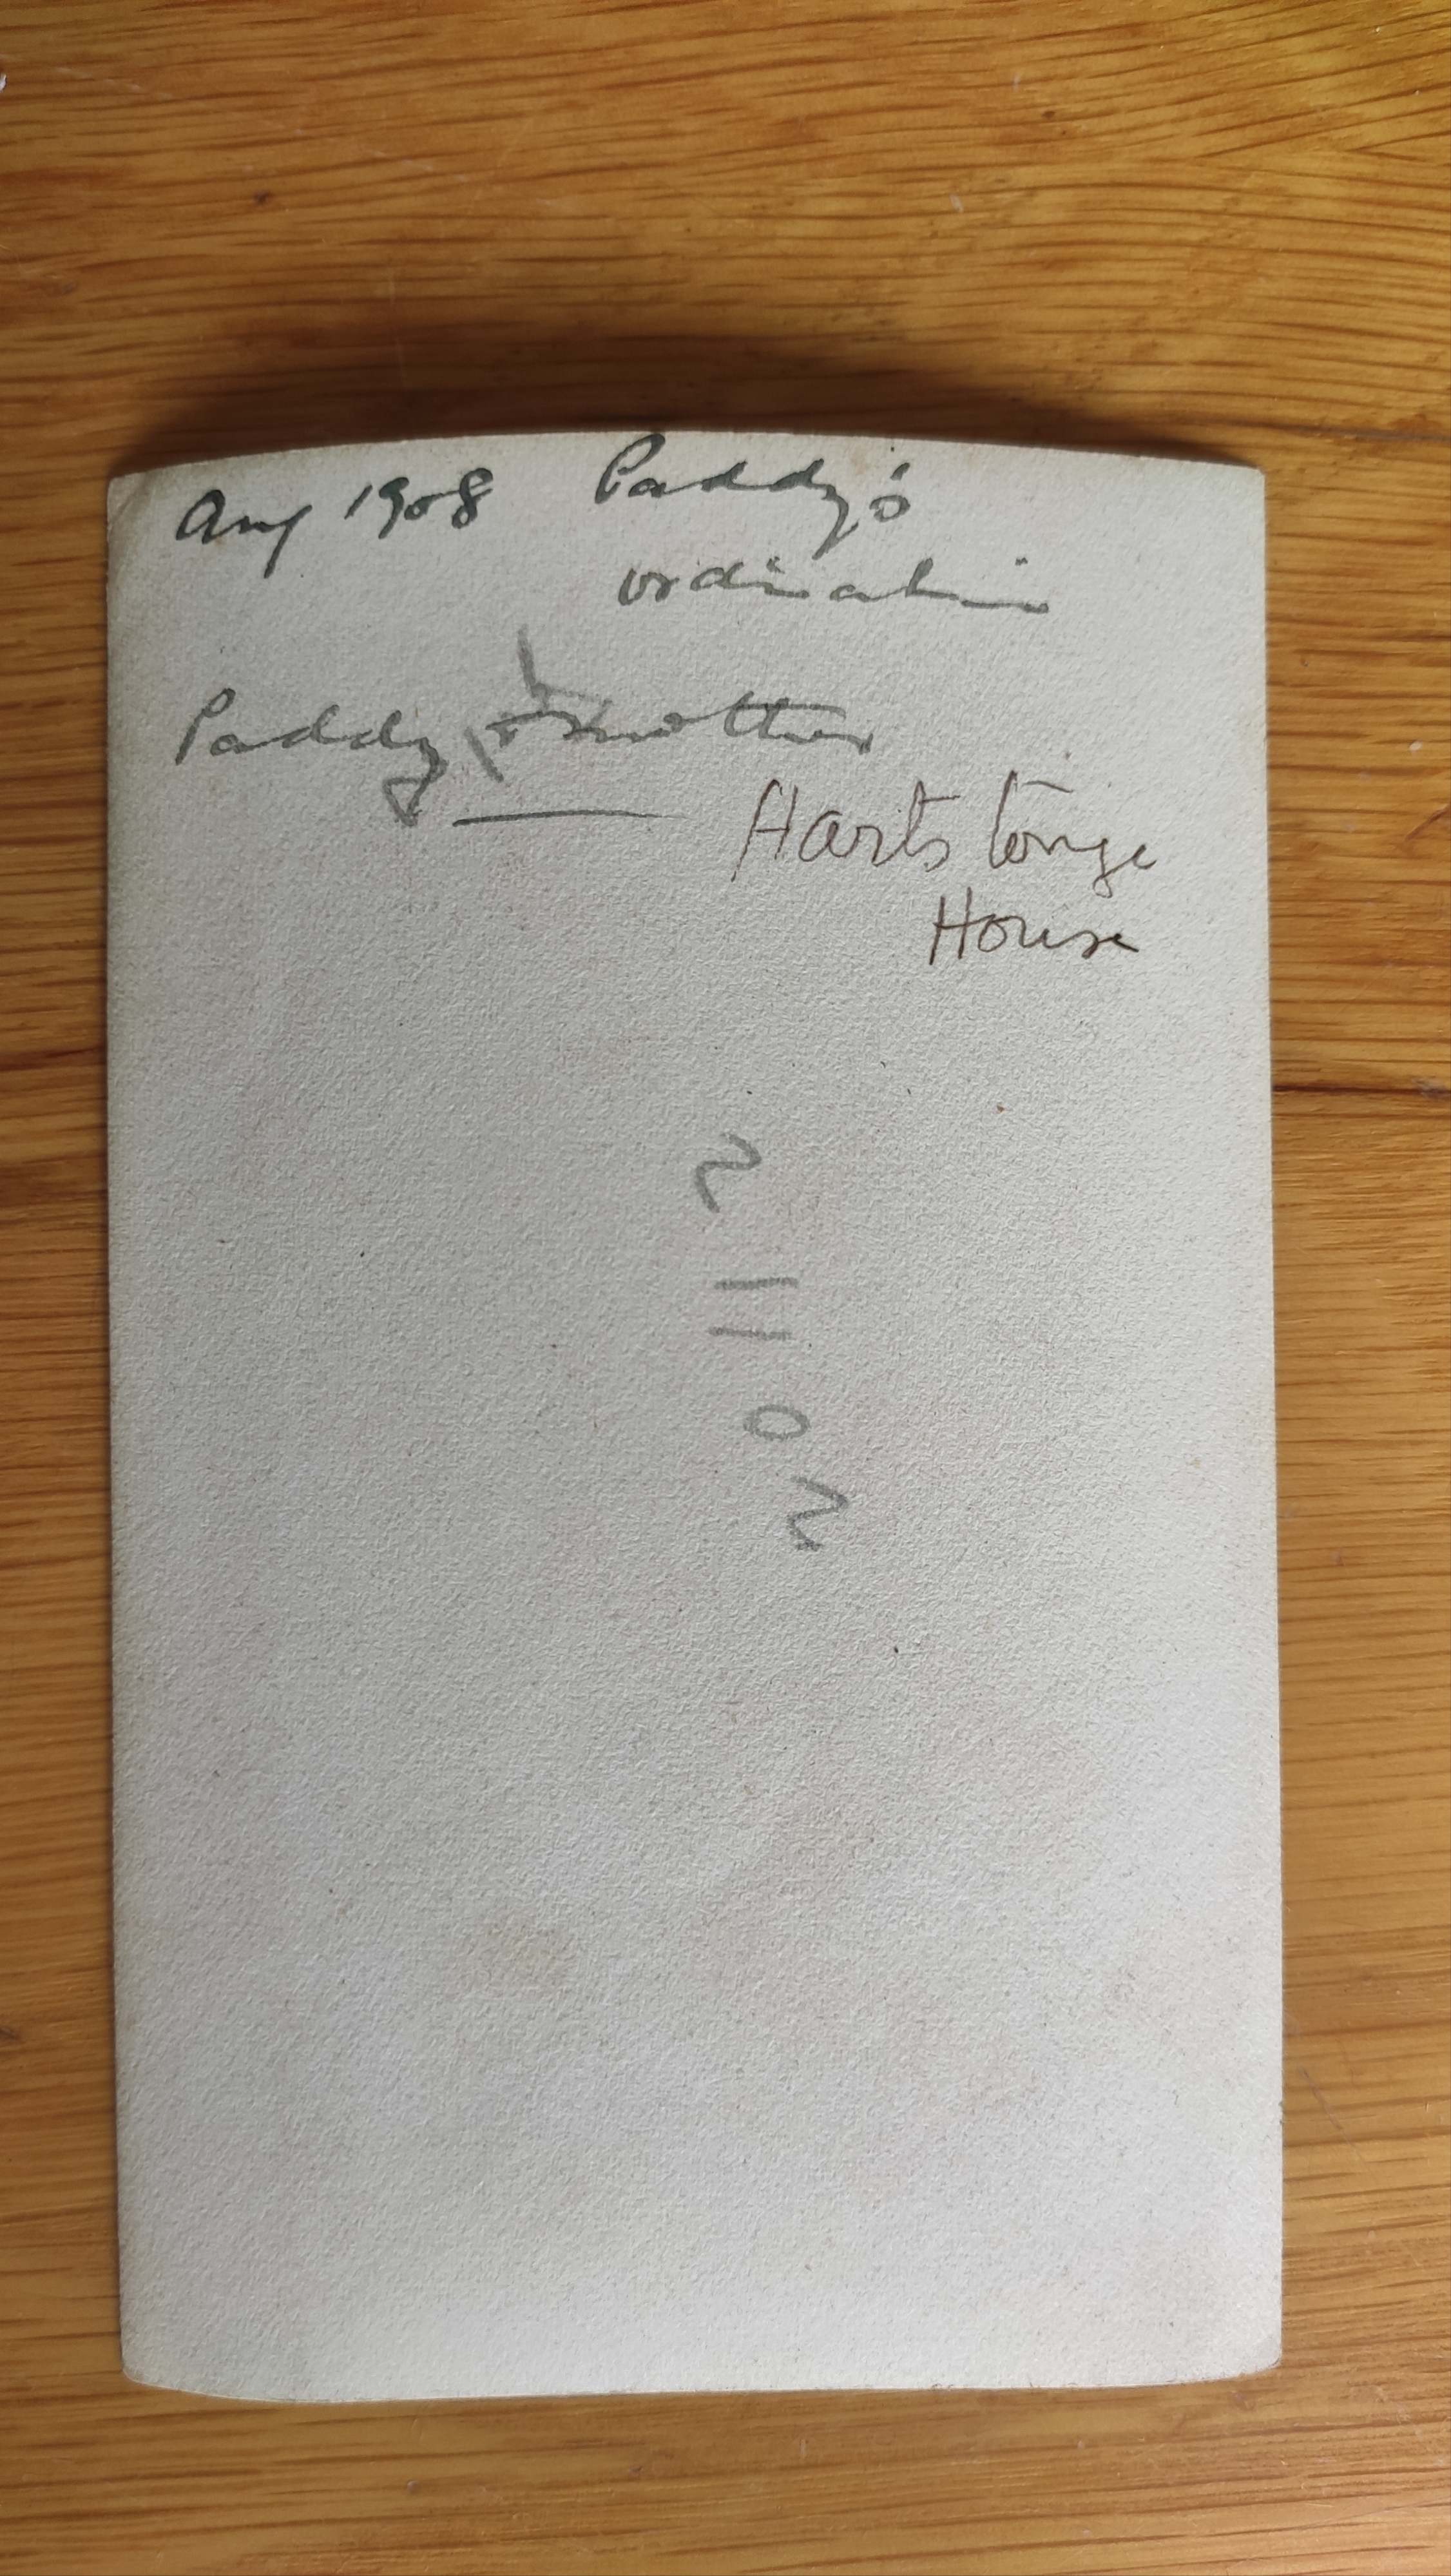 Aug 1908 Paddy's
ordination
Paddy & mother
Hartstonge
House
21102